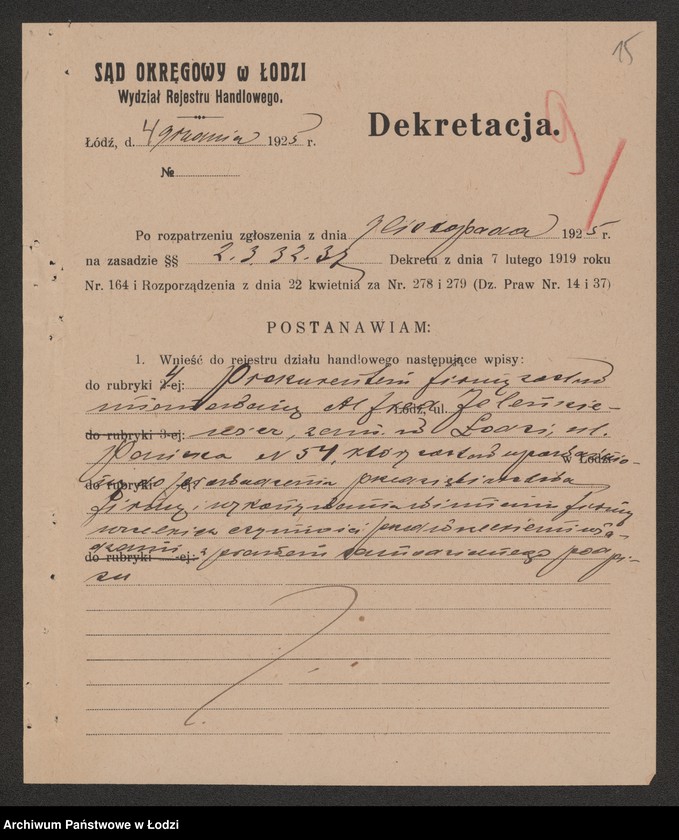 15
SĄD OKRĘGOWY w ŁODZI
Wydział Rejestru Handlowego.
Dekretacja.
Łódź, d. 4 grudnia 1925 r.
№
Po rozpatrzeniu zgłoszenia z dnia listopada 1925 r.
na zasadzie §§ 2. 3. 32. 37 Dekretu z dnia 7 lutego 1919 roku
Nr. 164 i Rozporządzenia z dnia 22 kwietnia za Nr. 278 i 279 (Dz. Praw Nr. 14 i 37)
POSTANAWIAM:
1. Wnieść do rejestru działu handlowego następujące wpisy:
do rubryki 4 -ej: Prokurentem firmy został
mianowany Alfred Łódź, ul.
do rubryki 3-ej: zam. w Łodzi, ul.
Pańska № 54, który został w Łodzi
do rubryki -ej: prowadzenia przedsiębiorstwa
firmy i wykonywania w imieniu firmy
wszelkich czynności przed wszelkiemi wła-
dzami do rubryki -ej: z prawem samodzielnego podpi-
su
Archiwum Państwowe w Łodzi